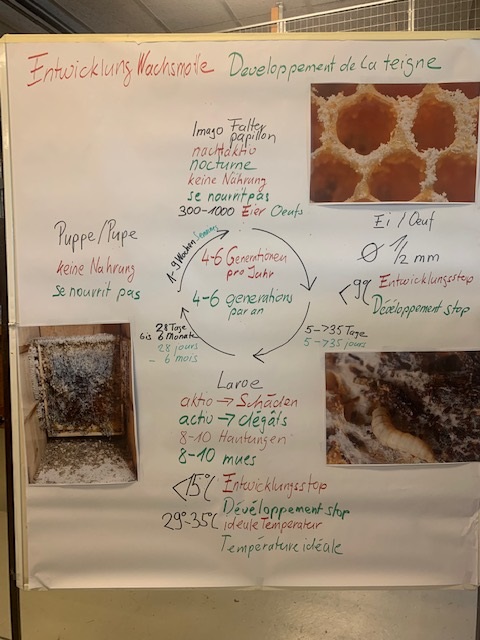 Entwicklung Wachsmotte Developpement de La teigne
Imago Falter
papillon
nachtaktiv
nocturne
keine Nahrung
se nourrit pas
300-1000 Eier Oeufs
Ei / Oeuf
Ø 1/2 mm
<9° Entwicklungsstop
Dévéloppement stop
5->35 Tage
5->35 jours
Larve
aktiv → Schäden
activ → dégâts
8-10 Häutungen
8-10 mues
<15°C Entwicklungsstop
Dévéloppement stop
29°-35°C ideale Temperatur
Température idéale
28 Tage
bis 6 Monate
28 jours
- 6 mois
Puppe/Pupe
keine Nahrung
se nourrit pas
1-9 Wochen Semaines
4-6 Generationen
pro Jahr
4-6 generations
par an